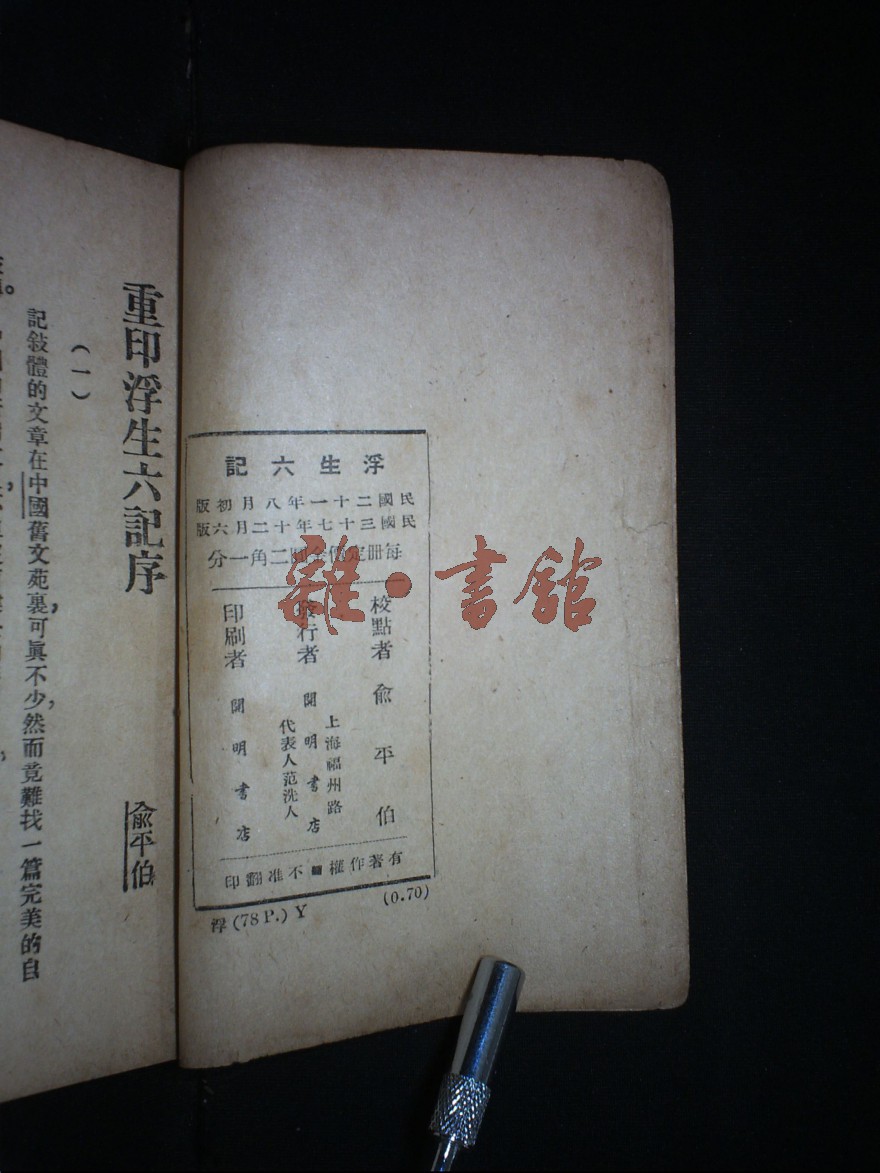 浮生六記
民國二十一年八月初版
民國三十七年十二月六版
每冊定價金圓二角一分
校點者 俞平伯
上海福州路
發行者 開明書店
代表人范洗人
印刷者 開明書店
有著作權■不准翻印
浮(78 P.) Y (0.70)
雜·書館
重印浮生六記序
俞平伯
(一)
記敍體的文章在中國舊文苑裏,可眞不少,然而竟難找一篇完美的自